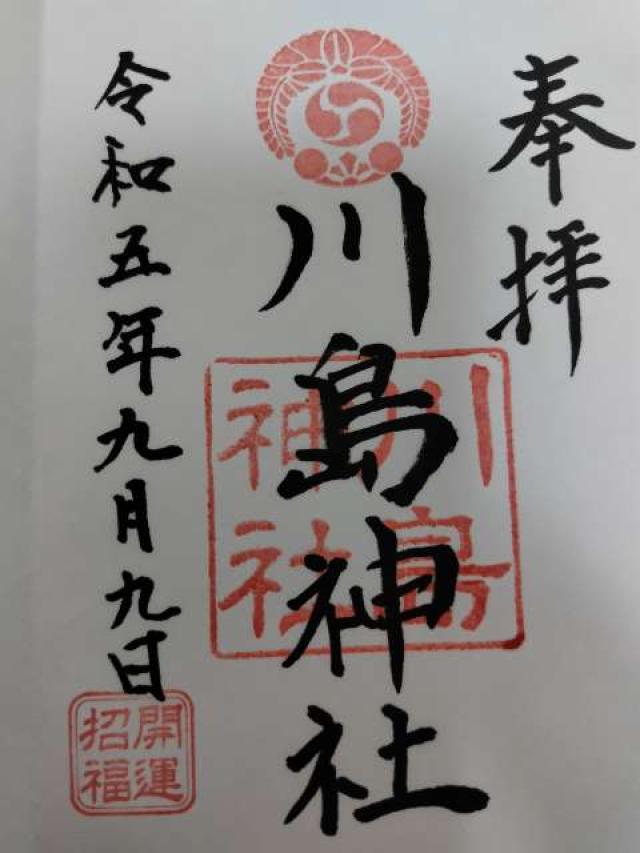 奉拝
川島神社
川島
神社
令和五年九月九日
開運
招福